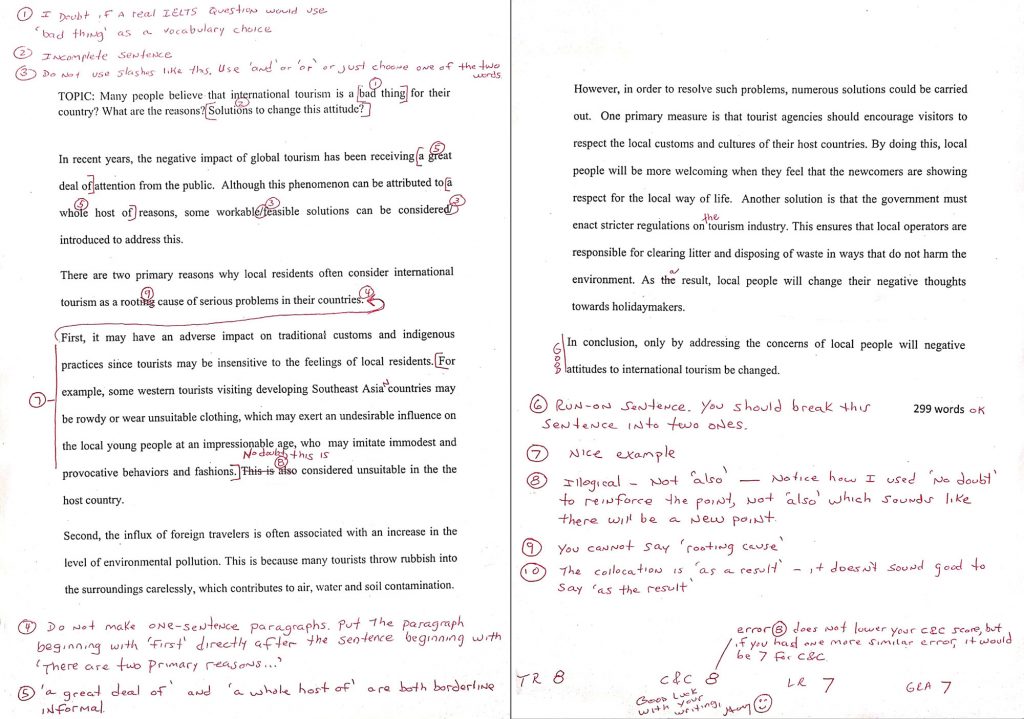 ① I Doubt if a real IELTS Question would use
'bad thing' as a vocabulary choice
② Incomplete sentence
③ Do not use slashes like this. Use 'and' or 'or' or just choose one of the two words
TOPIC: Many people believe that international tourism is a [bad thing] ① for their
country? What are the reasons? [Solutions to change this attitude?] ②
In recent years, the negative impact of global tourism has been receiving [a great ⑤
deal of] attention from the public. Although this phenomenon can be attributed to [a
whole host of] ⑤ reasons, some workable/feasible ③ solutions can be considered/ ③
introduced to address this.
There are two primary reasons why local residents often consider international
tourism as a rooting ⑨ cause of serious problems in their countries. ④
First, it may have an adverse impact on traditional customs and indigenous
practices since tourists may be insensitive to the feelings of local residents. [For
example, some western tourists visiting developing Southeast Asian countries may
⑦
be rowdy or wear unsuitable clothing, which may exert an undesirable influence on
the local young people at an impressionable age, who may imitate immodest and
No doubt, this is
provocative behaviors and fashions.] This is also ⑧ considered unsuitable in the the
host country.
Second, the influx of foreign travelers is often associated with an increase in the
level of environmental pollution. This is because many tourists throw rubbish into
the surroundings carelessly, which contributes to air, water and soil contamination.
④ Do not make one-sentence paragraphs. Put the paragraph
beginning with 'First' directly after the sentence beginning with
'There are two primary reasons...'
⑤ 'a great deal of' and 'a whole host of' are both borderline
informal.
However, in order to resolve such problems, numerous solutions could be carried
out. One primary measure is that tourist agencies should encourage visitors to
respect the local customs and cultures of their host countries. By doing this, local
people will be more welcoming when they feel that the newcomers are showing
respect for the local way of life. Another solution is that the government must
the
enact stricter regulations on tourism industry. This ensures that local operators are
responsible for clearing litter and disposing of waste in ways that do not harm the
a
environment. As the result, local people will change their negative thoughts
towards holidaymakers.
GOOD
In conclusion, only by addressing the concerns of local people will negative
attitudes to international tourism be changed.
299 words OK
⑥ Run-on sentence. You should break this
sentence into two ones.
⑦ Nice example
⑧ Illogical - Not 'also' — Notice how I used 'No doubt'
to reinforce the point, not 'also' which sounds like
there will be a new point.
⑨ You cannot say 'rooting cause'
⑩ The collocation is 'as a result' - it doesn't sound good to
say 'as the result'
error ⑧ does not lower your C&C score, but
if you had one more similar error, it would
be 7 for C&C.
TR 8
C&C 8
LR 7
GRA 7
Good Luck
with your
writing,